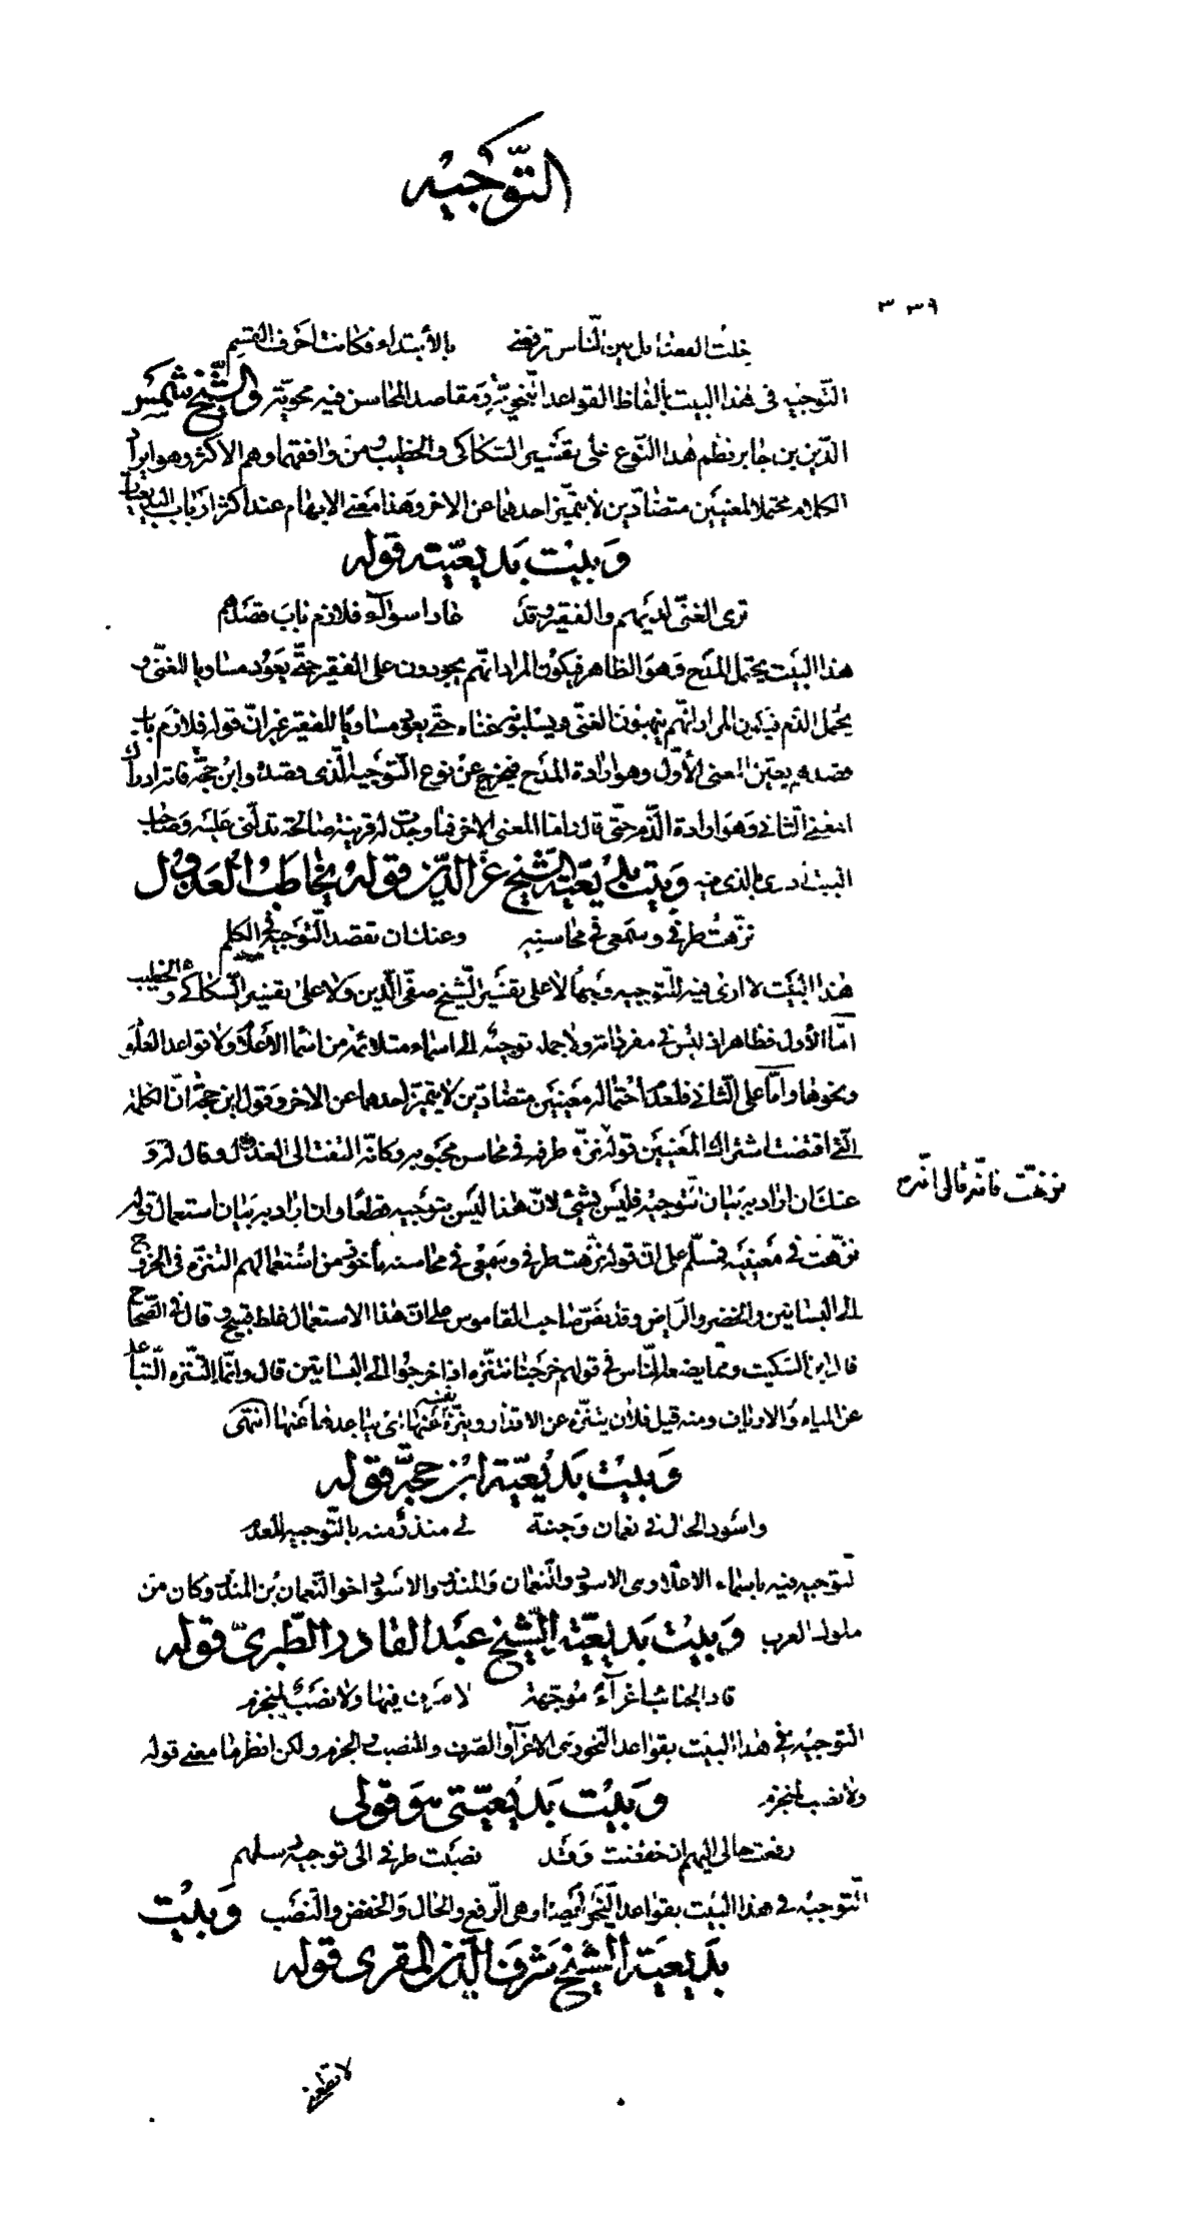 التّوجيه
٣٣٩
خلت الفضائل بين النّاس ترفعني بالأبتداء فكانت احرف القسم
التّوجيه فى هذا البيت بألفاظ القواعد النّحويّة ومقاصد المحاسن فيه محويّة والشّيخ شمس
الدّين بن جابر نظم هذا النّوع على تفسير السّكاكى والخطيب ومن وافقهما وهم الاكثر وهو ايراد
الكلام محتملا لمعنيين متضادّين لا يتميّز احدهما عن الاخر وهذا معنى الابهام عند اكثر ارباب البديعيات
وبيت بديعيّته قوله
ترى الغنىّ لديهم والفقير وقد عادا سواء فلازم باب قصدهم
هذا البيت يحتمل المدح وهو الظاهر فيكون المراد انّهم يجودون على الفقير حتّى يعود مساويا للغنىّ و
يحتمل الذم فيكون المراد انّهم ينهبون الغنىّ ويسلبونه غناه حتّى يعود مساويا للفقير غير انّ قوله فلازم باب
قصدهم يعيّن المعنى الأوّل وهو ارادة المدح فيخرج عن نوع التّوجيه الّذى قصده وابن حجّة فانه ادرك
المعنى الثانى وهو ارادة الذّم حتّى قال امّا المعنى الاخر فما وجدت له قرينة صالحة تدلّنى عليه وصاحب
البيت ادرى بالذى فيه وبيت بديعيّة الشّيخ عزّ الدّين قوله يخاطب العذول
نزّهت طرفى وسمعى فى محاسنه وعنك ان تقصد التّوجيه فى الكلم
هذا البيت لا ارى فيه للتّوجيه وجها لا على تفسير الشّيخ صفىّ الدّين ولا على تفسير السّكاكى والخطيب
امّا الأول فظاهر اذ ليس فى مفرداته ولا جمله توجيه الى اسماء متلائمة من اسما الأعلام ولا قواعد العلوم
ونحوها وامّا على الثّانى فلعدم احتماله معنيين متضادّين لا يتميّز احدهما عن الاخر وقول ابن حجّة انّ الكلمة
الّتى اقتضت اشتراك المعنيين قوله نزّه طرفه فى محاسن محبوبه وكانّه التفت الى العذول وقال له و
عنك ان اراد به بيان التّوجيه فليس بشئ لانّ هذا ليس بتوجيه قطعًا وان اراد به بيان استعمال قوله
نزّهت فى معنييه فمسلّم على انّ قوله نزّهت طرفى وسمعى فى محاسنه مأخوذ من استعمالهم التنزّه فى الخروج
الى البساتين والخضر والرّياض وقد نصّ صاحب القاموس على انّ هذا الاستعمال غلط قبيح وقال فى الصّحاح
قال ابن السّكيت وممّا يضعه النّاس فى قولهم خرجنا نتنزّه اذا خرجوا الى البساتين قال وانّما التّنزّه التّباعد
عن المياه والارياف ومنه قيل فلان يتنزّه عن الاقذار وينزّه نفسه عنها اى يباعدها عنها انتهى
وبيت بديعيّة ابن حجّة قوله
واسود الخال فى نعمان وجنته لى منذر منه بالتّوجيه للعدم
التوجيه فيه باسماء الاعلام وهى الاسود والنّعمان والمنذر والاسود اخو النّعمان بن المنذر وكان من
ملوك العرب وبيت بديعيّة الشّيخ عبد القادر الطّبرىّ قوله
قاد الجنائب اغراء موجّهة لا صرف فيها ولا نصب لمنجزم
التّوجيه فى هذا البيت بقواعد النّحو وهى الاغراء والصّرف والنصب والجزم ولكن انظر ما معنى قوله
ولا نصب لمنجزم وبيت بديعيّتى هو قولى
رفعت حالى اليهم ان خفضت وقد نصبت طرفى الى توجيه رسلهم
التّوجيه فى هذا البيت بقواعد النّحو ايضا وهى الرّفع والحال والخفض والنّصب وبيت
بديعيّة الشّيخ شرف الدّين المقرى قوله